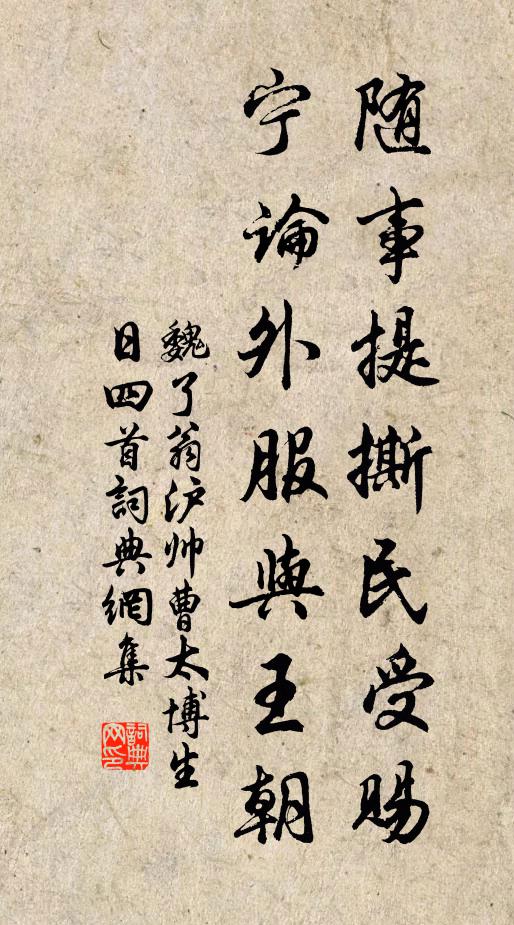 随事提撕民受赐
宁论外服與王朝
魏了翁沪帅曹太博生
日四首詞典網集
詞典
网印